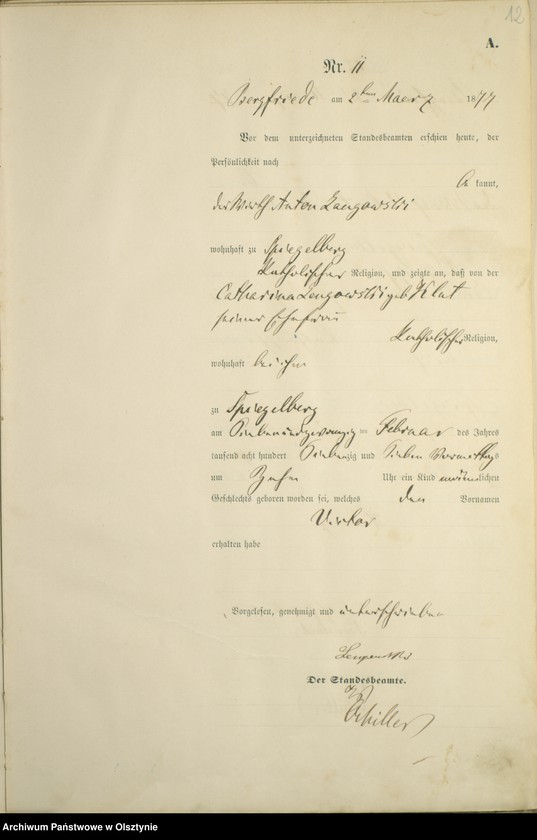 12
A.
Nr. 11
Bergfriede am 2ten Maerz 1877
Vor dem unterzeichneten Standesbeamten erschien heute, der
Persönlichkeit nach
be kannt,
der Wirth Anton Langowski
wohnhaft zu Spiegelberg
katholischer Religion, und zeigte an, daß von der
Catharina Langowski geb Klat
seiner Ehefrau
katholischer Religion,
wohnhaft bei ihm
zu Spiegelberg
am Siebenundzwanzig ten Februar des Jahres
tausend acht hundert Siebenzig und Sieben Vormittags
um Zehn Uhr ein Kind männlichen
Geschlechts geboren worden sei, welches den Vornamen
Victor
erhalten habe
Vorgelesen, genehmigt und unterschrieben
Der Standesbeamte.
Schiller
Archiwum Państwowe w Olsztynie